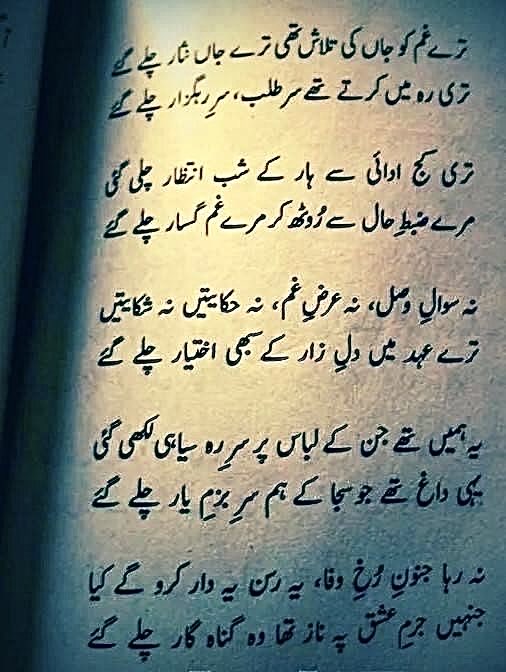 ترے غم کو جاں کی تلاش تھی ترے جاں نثار چلے گئے
تری رہ میں کرتے تھے سر طلب، سرِ رہگزار چلے گئے
تری کج ادائی سے ہار کے شب انتظار چلی گئی
مرے ضبطِ حال سے رُوٹھ کر مرے غم گسار چلے گئے
نہ سوالِ وصل، نہ عرضِ غم، نہ حکایتیں نہ شکایتیں
ترے عہد میں دلِ زار کے سبھی اختیار چلے گئے
یہ ہمیں تھے جن کے لباس پر سرِ رہ سیاہی لکھی گئی
یہی داغ تھے جو سجا کے ہم سرِ بزمِ یار چلے گئے
نہ رہا جنونِ رُخِ وفا، یہ رسن یہ دار کرو گے کیا
جنہیں جرمِ عشق پہ ناز تھا وہ گناہ گار چلے گئے